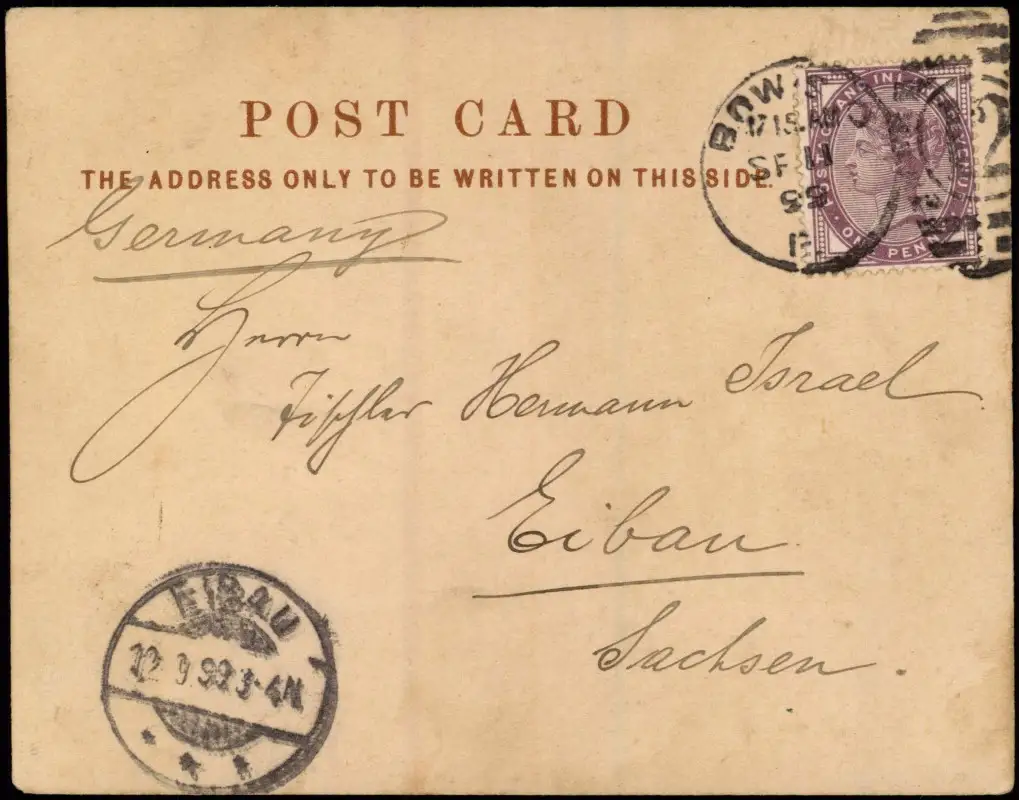 POST CARD
THE ADDRESS ONLY TO BE WRITTEN ON THIS SIDE.
BOW
SP 11
99
E.
POSTAGE AND INLAND REVENUE
ONE PENNY
Germany
Herrn
Tischler Hermann Israel
Eibau
Sachsen.
EIBAU
12 9 99 3-4N